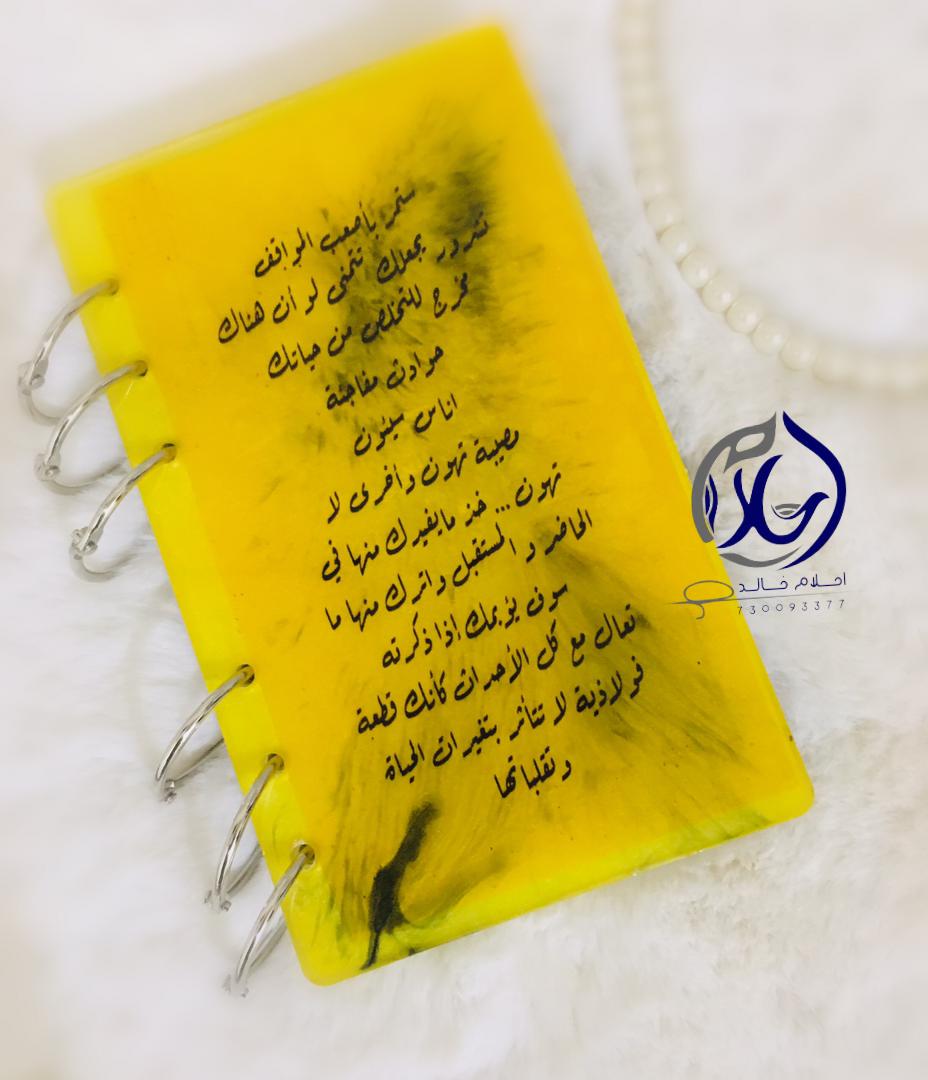 ستمر بأصعب المواقف
تتمنى لو أن هناك
مخرج للتخلص من حياتك
حوادث مفاجئة
اناس سيئون
مصيبة تهون وأخرى لا
تهون ... خذ مايفيدك منها في
الحاضر و المستقبل واترك منها ما
سوف يؤلمك إذا ذكرته
تعال مع كل الأحداث كأنك قطعة
فولاذية لا تتأثر بتغيرات الحياة
وتقلباتها
احلام
احلام خالد
730093377